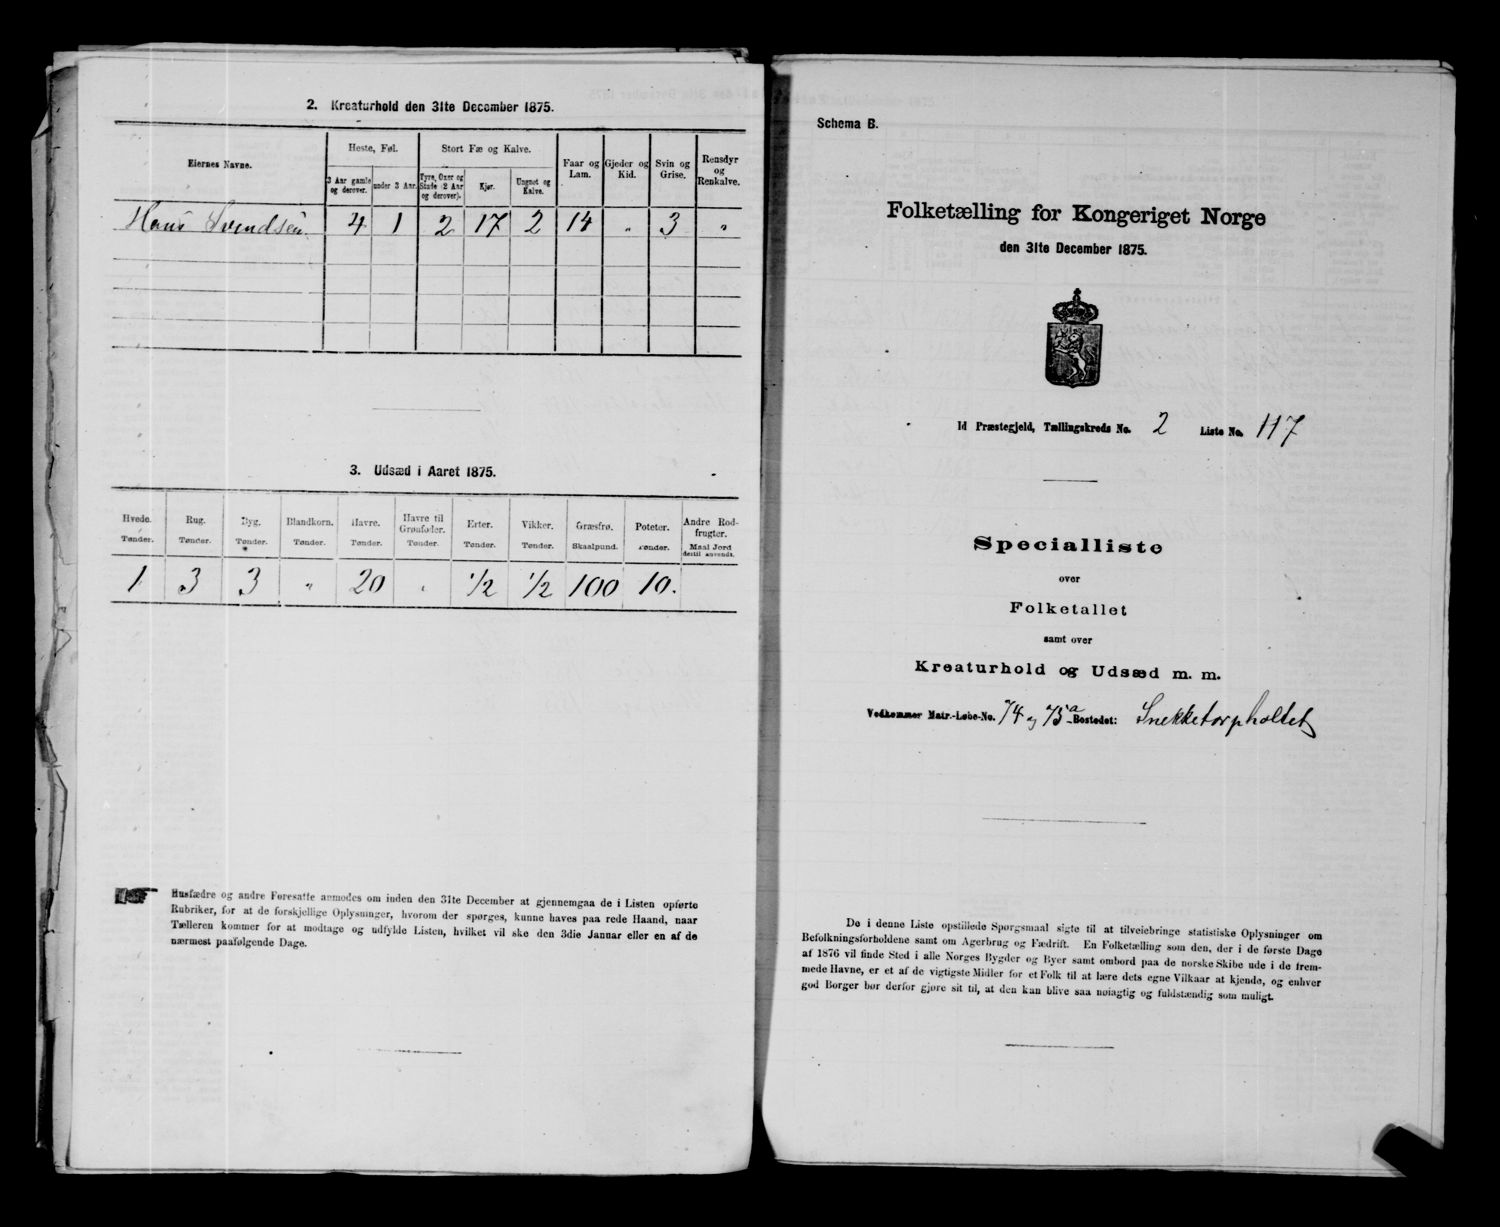 2. Kreaturhold den 31te December 1875.
Eiernes Navne.
Heste, Føl.
Stort Fæ og Kalve.
Faar og Lam.
Gjeder og Kid.
Svin og Grise.
Rensdyr og Renkalve.
3 Aar gamle og derover.
under 3 Aar.
Tyre, Oxer og Stude (2 Aar og derover).
Kjør.
Ungnøt og Kalve.
Hans Svendsen 4 1 2 17 2 14 " 3 "
3. Udsæd i Aaret 1875.
Hvede. Rug. Byg. Blandkorn. Havre. Havre til Grønfoder. Erter. Vikker. Græsfrø. Poteter. Andre Rodfrugter.
Tønder. Tønder. Tønder. Tønder. Tønder. Tønder. Tønder. Tønder. Skaalpund. Tønder. Maal Jord dertil anvendt.
1 3 3 " 20 " 1/2 1/2 100 10.
Husfædre og andre Foresatte anmodes om inden den 31te December at gjennemgaa de i Listen opførte
Rubriker, for at de forskjellige Oplysninger, hvorom der spørges, kunne haves paa rede Haand, naar
Tælleren kommer for at modtage og udfylde Listen, hvilket vil ske den 3die Januar eller en af de
nærmest paafølgende Dage.
Schema B.
Folketælling for Kongeriget Norge
den 31te December 1875.
Id Præstegjeld, Tællingskreds No. 2 Liste No. 117
Specialliste
over
Folketallet
samt over
Kreaturhold og Udsæd m. m.
Vedkommer Matr.-Løbe-No. 74 og 75a Bostedet: Snekketorpholtet
De i denne Liste opstillede Spørgsmaal sigte til at tilveiebringe statistiske Oplysninger om
Befolkningsforholdene samt om Agerbrug og Fædrift. En Folketælling som den, der i de første Dage
af 1876 vil finde Sted i alle Norges Bygder og Byer samt ombord paa de norske Skibe ude i de frem-
mede Havne, er et af de vigtigste Midler for et Folk til at lære dets egne Vilkaar at kjende, og enhver
god Borger bør derfor gjøre sit til, at den kan blive saa nøiagtig og fuldstændig som muligt.